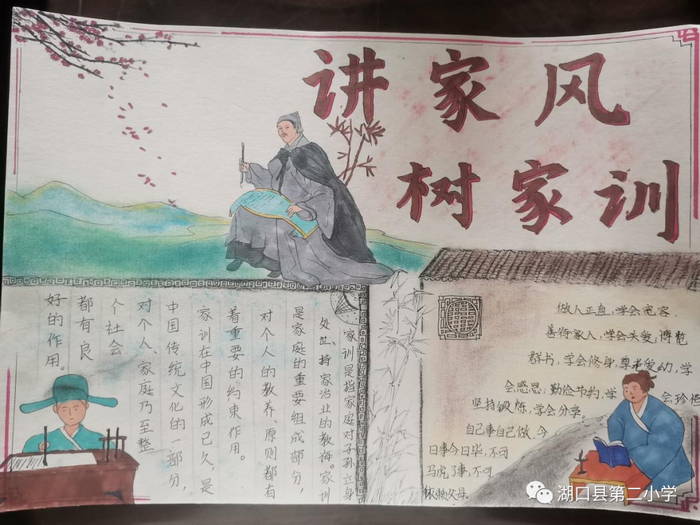 讲家风
树家训
家训是指家庭对子孙立身
处世、持家治业的教诲。家训
是家庭的重要组成部分,
对个人的教养、原则都有
着重要的约束作用。
家训在中国形成已久,是
中国传统文化的一部分,
对个人、家庭乃至整
个社会
都有良
好的作用。
做人正直,学会宽容
善待家人,学会关爱,博览
群书,学会修身,尊老爱幼,学
会感恩,勤俭节约,学
会珍惜
坚持锻炼,学会分享
自己事自己做,今
日事今日毕,不可
马虎了事,不可
湖口县第二小学